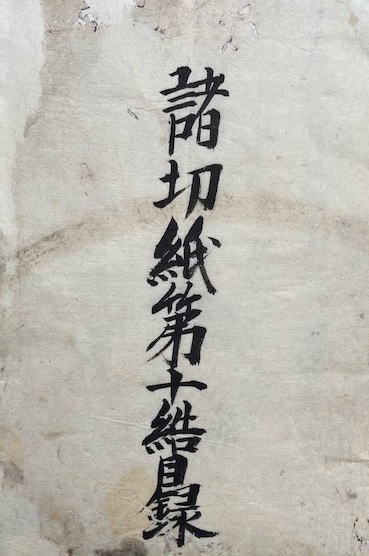 諸切紙第十結目録